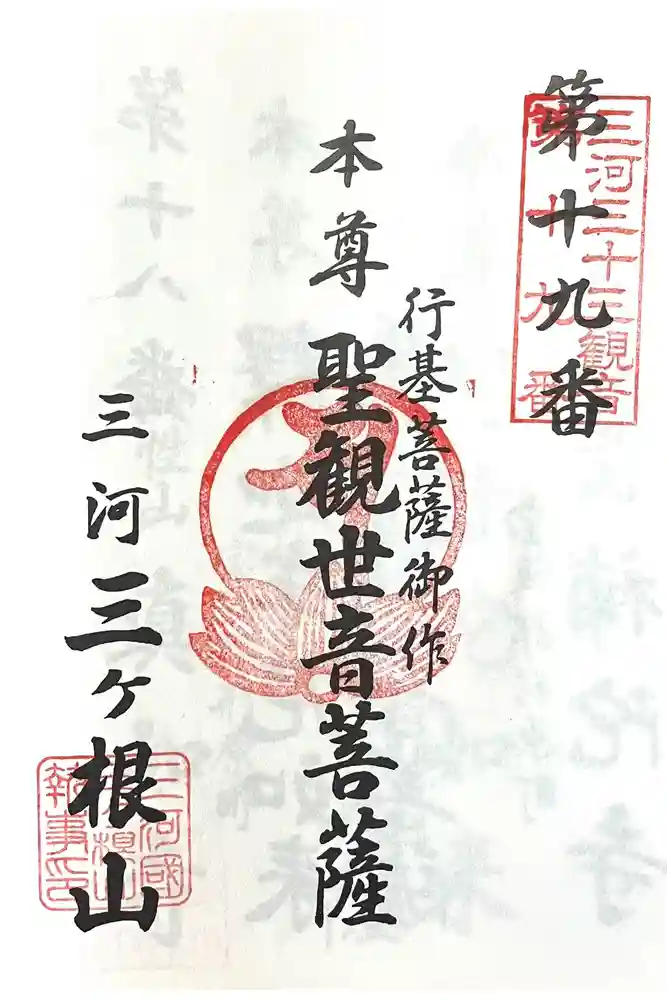 第十九番
三河三十三観音
第十九番
行基菩薩御作
本尊 聖観世音菩薩
三河三ヶ根山
三河國
執事印